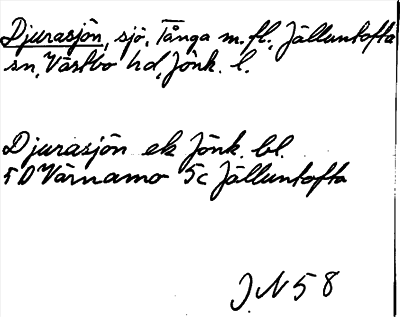 Djurasjön, sjö, Tånga m.fl., Jälluntofta
sn, Västbo hd, Jönk. l.
Djurasjön ek Jönk. bl.
5D Värnamo 5c Jälluntofta
J.N 58